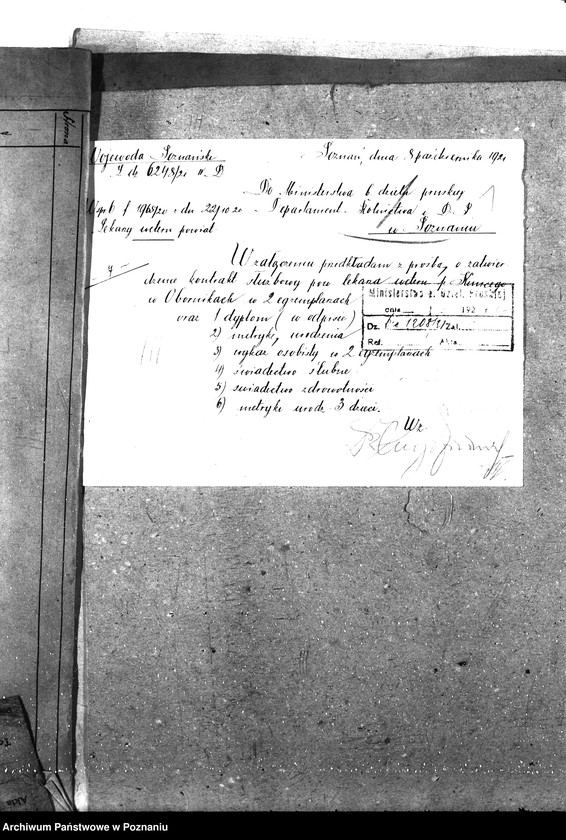 Strona
Wojewoda Poznański
L. dz 6248/21 W. D
Poznań, dnia 8 października 1921
Do Ministerstwa b. dzieln. pruskiej
Departament Rolnictwa i D. P.
w Poznaniu
1968/20 z dnia 22/10 20
Lekarz weter. powiat
W załączeniu przedkładam z prośbą o zatwier
dzenie kontrakt służbowy pow. lekarza weter. p.
w Obornikach w 2 egzemplarzach
oraz 1) dyplom (w odpisie)
2) metrykę urodzenia
3) wykaz osobisty w 2 egzemplarzach
4) świadectwo ślubne
5) świadectwo zdrowotności
6) metryki urodz. 3 dzieci.
Wz.
Ministerstwo b. dziel. Pruskiej
dnia 192
Dz. 1208/21 Zal.
Ref. Akta
Akta
Archiwum Państwowe w Poznaniu